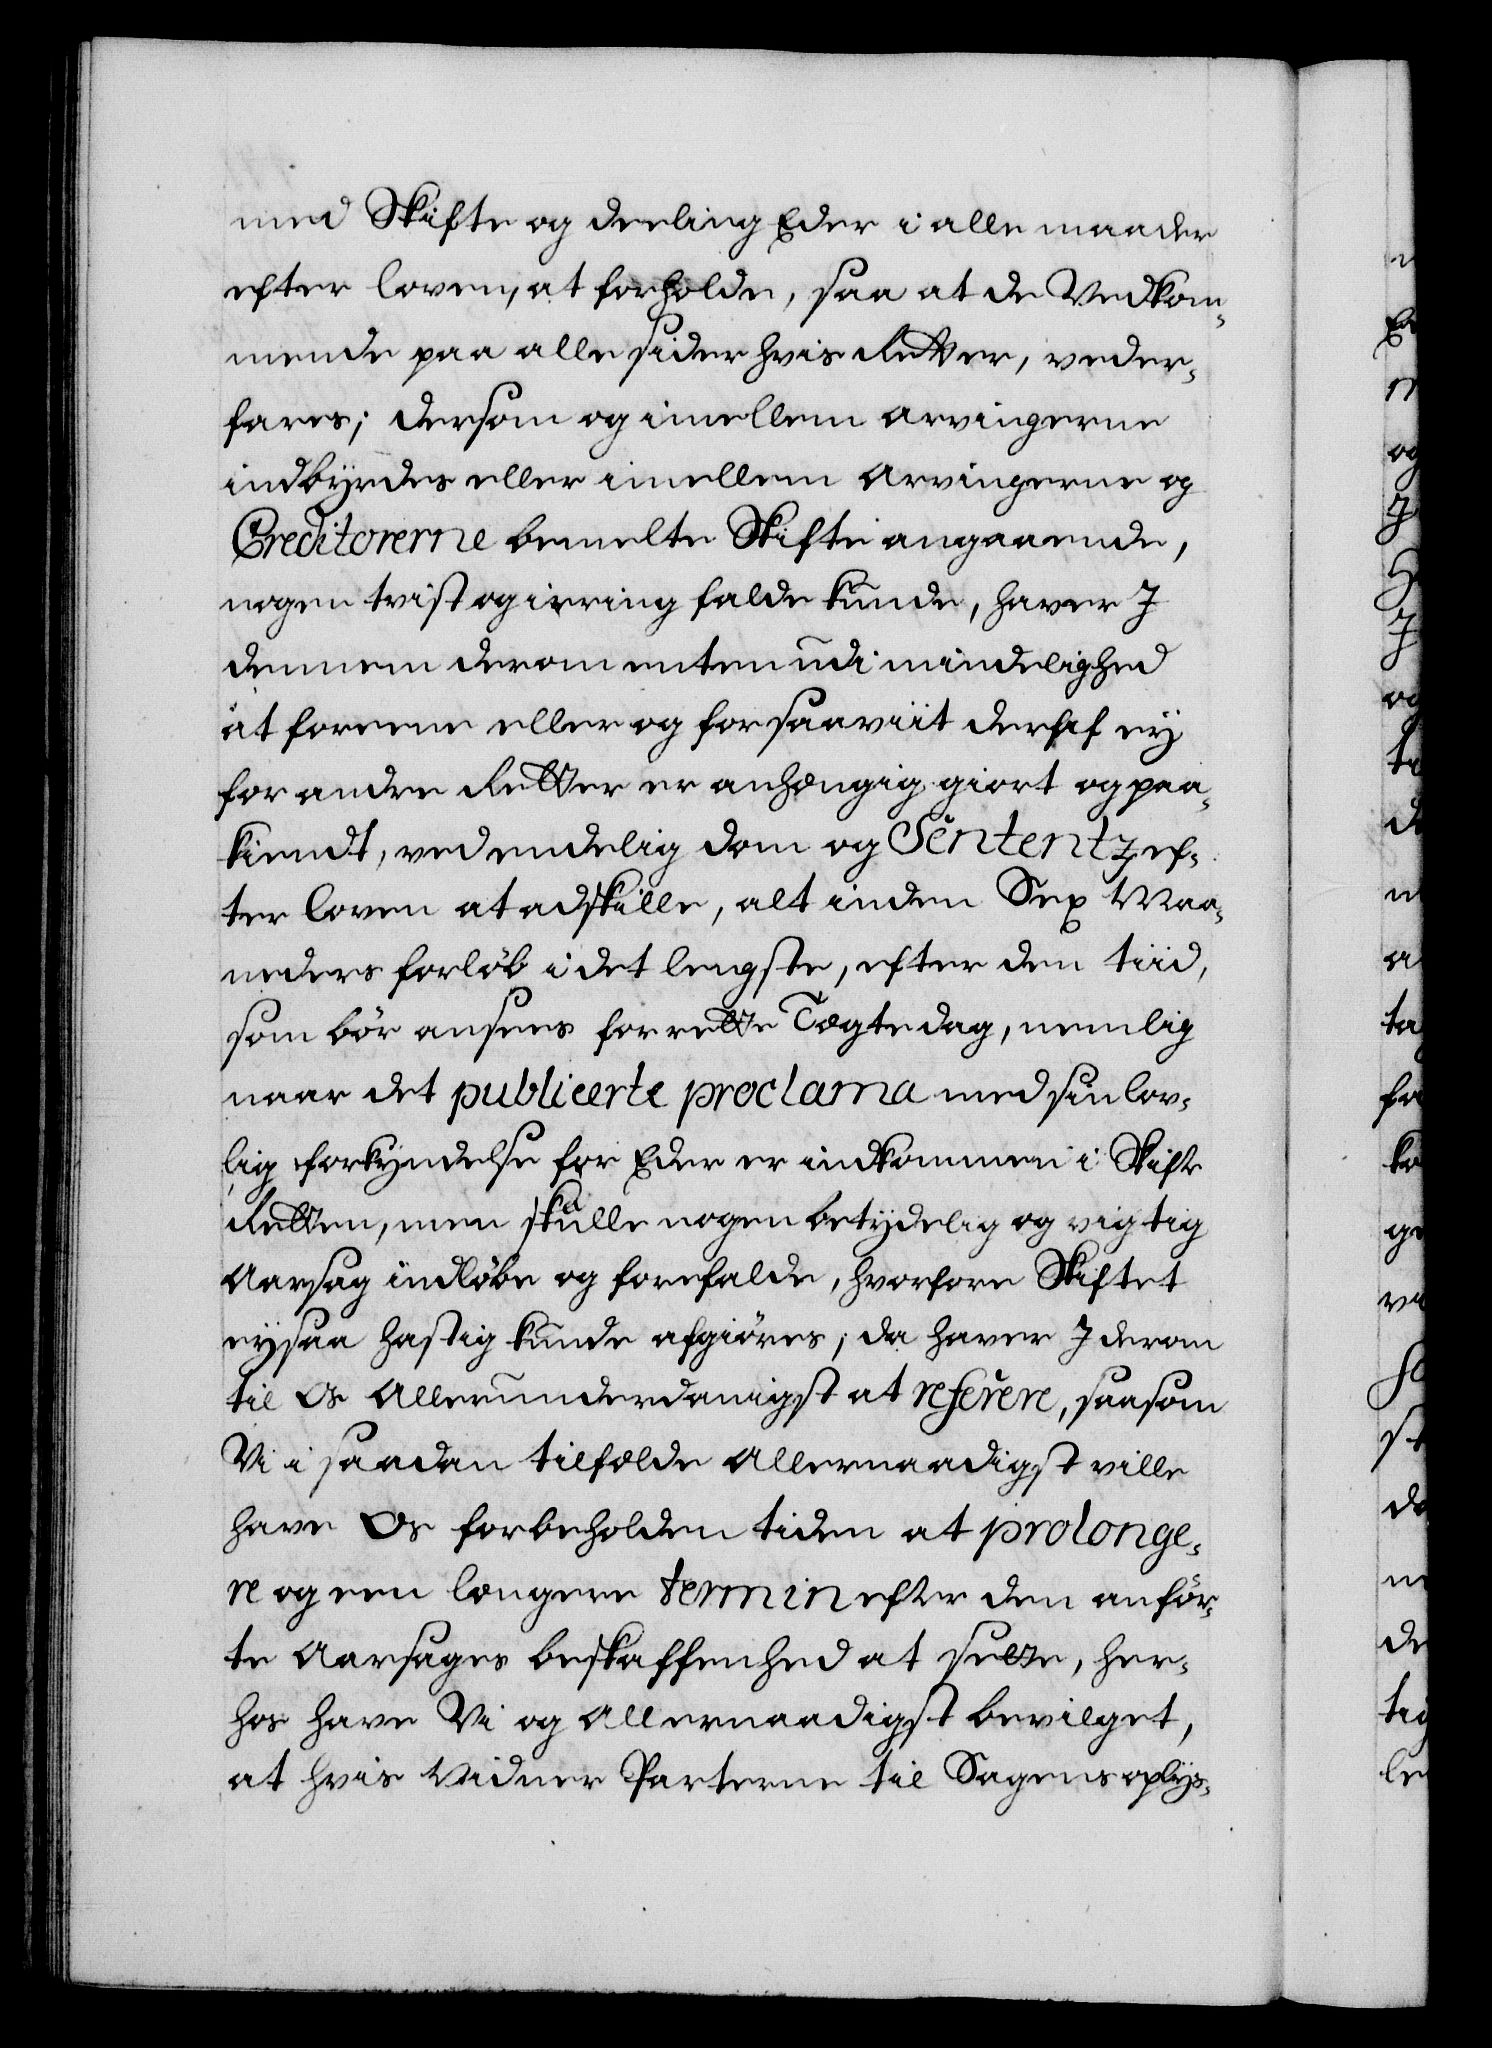 med Skifte og deeling Eder i alle maader
efter loven, at forholde, saa at de Vedkom¬
mende paa alle sider hvis Retter, veder¬
fares; dersom og imellem arvingerne
indbÿrdes eller imellem Arvingerne og
Creditorerne bemelte Skifte angaaende,
nogen tvist og irring falde kunde, haver I
dennem derom enten udi mindelighed
at foreene eller og forsaaviit deraf eÿ
for anden Retter er anhængig giort og paa¬
kiendt, ved endelig dom og Sententz ef¬
ter loven at adskille, alt inden Sex Maa¬
neders forløb i det lengste, efter den tiid,
som bør ansees for rette Tægtedag, nemlig
naar det publicerte proclama med sin lov¬
lig forkyndelse for Eder er indkommen i Skifte
Retten, men skulle nogen betÿdelig og vigtig
Aarsag indløbe og forefalde, hvorfore Skiftet
eÿ saa hastig kunde afgiøres; da haver I derom
til Os Allerunderdanigst at referere, saasom
Vi i saadan tilfælde Allernaadigst ville
have Os forbeholden tiden at prolonge¬
re og een længere termin efter den anfør¬
te Aarsages beskaffenhed at sette, her¬
hos have Vi og Allernaadigst bevilget,
at hvis Vidner Parterne til Sagens oplÿs¬